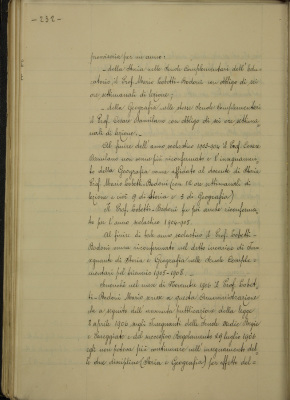 - 232 -
provvisoria per un anno:
- della Storia nelle Scuole Complementari dell'Edu-
catorio il Prof. Mario con obbligo di sei
ore settimanali di lezione;
- della Geografia nelle stesse Scuole Complementari
il Prof. Cesare con obbligo di sei ore settima-
nali di lezione.-
Al finire dell'anno scolastico 1903-904 il Prof. Cesare
non venne più riconfermato e l'insegnamen-
to della Geografia venne affidato al docente di Storia
Prof. Mario (con 15 ore settimanali di
lezione e cioè 9 di Storia e 6 di Geografia)
Il Prof. fu poi anche riconferma-
to per l'anno scolastico 1904-905.
Al finire di tale anno scolastico il Prof.
venne riconfermato nel detto incarico di
segnante di Storia e Geografia nelle Scuole Comple-
mentari pel biennio 1905-1906.
nel mese di Novembre 1905 il Prof.
Mario scrisse a questa Amministrazione
che a seguito della pubblicazione della legge
8 aprile 1906 sugli Insegnanti delle Scuole Medie Regie
e Pareggiate e del Regolamento 29 luglio 1906
egli non poteva più continuare nell'insegnamento del-
le due discipline (Storia e Geografia) per effetto del